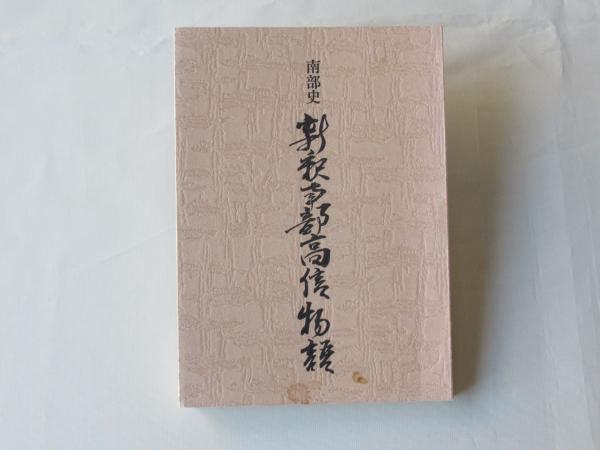 南部史
新釈南部高信物語